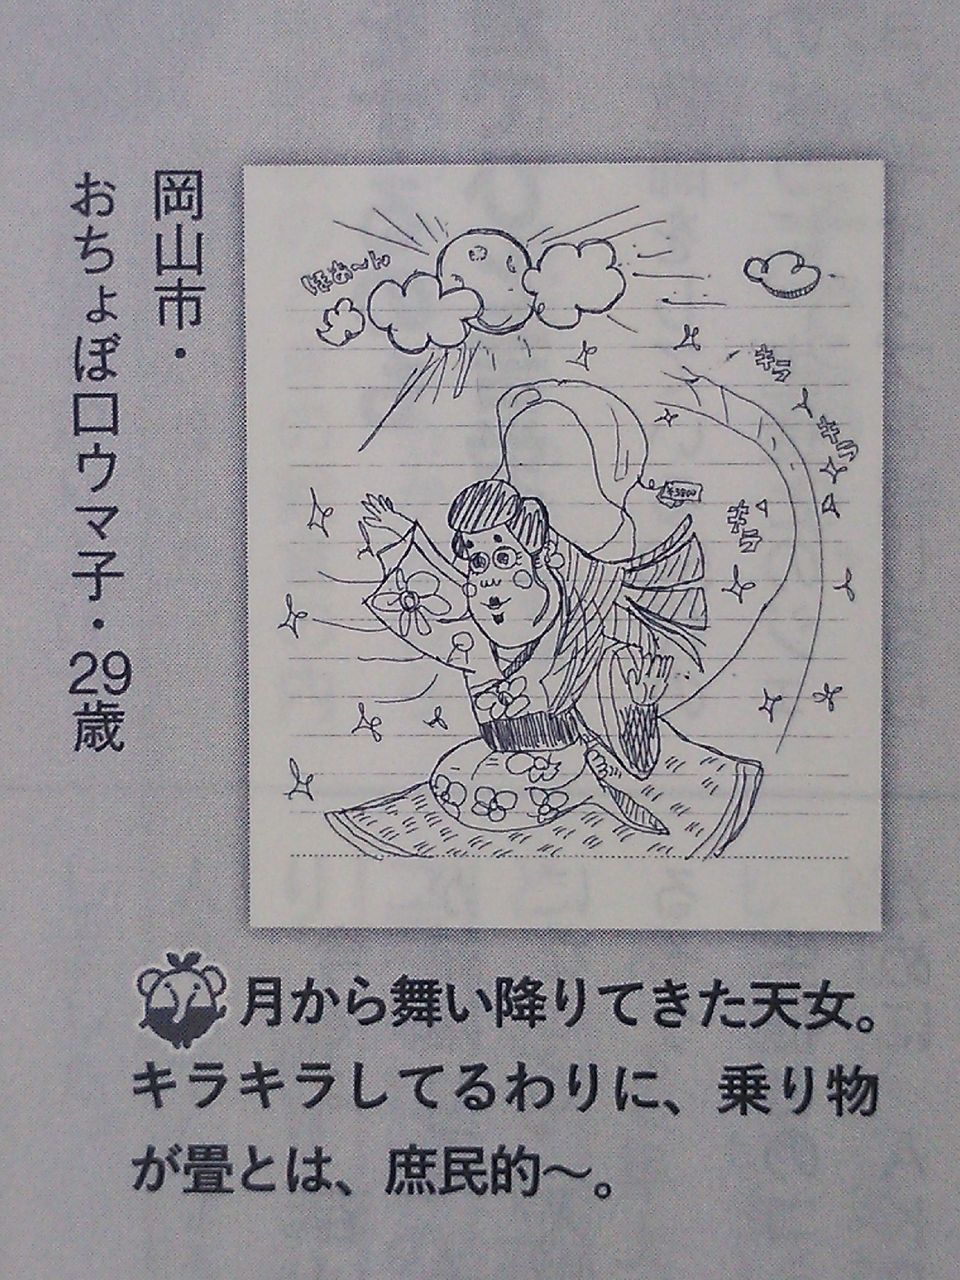 岡山市・
おちょぼ口ウマ子・29歳
ほわ～ん
キラ
キラ
キラ
¥3800
月から舞い降りてきた天女。
キラキラしてるわりに、乗り物
が畳とは、庶民的～。